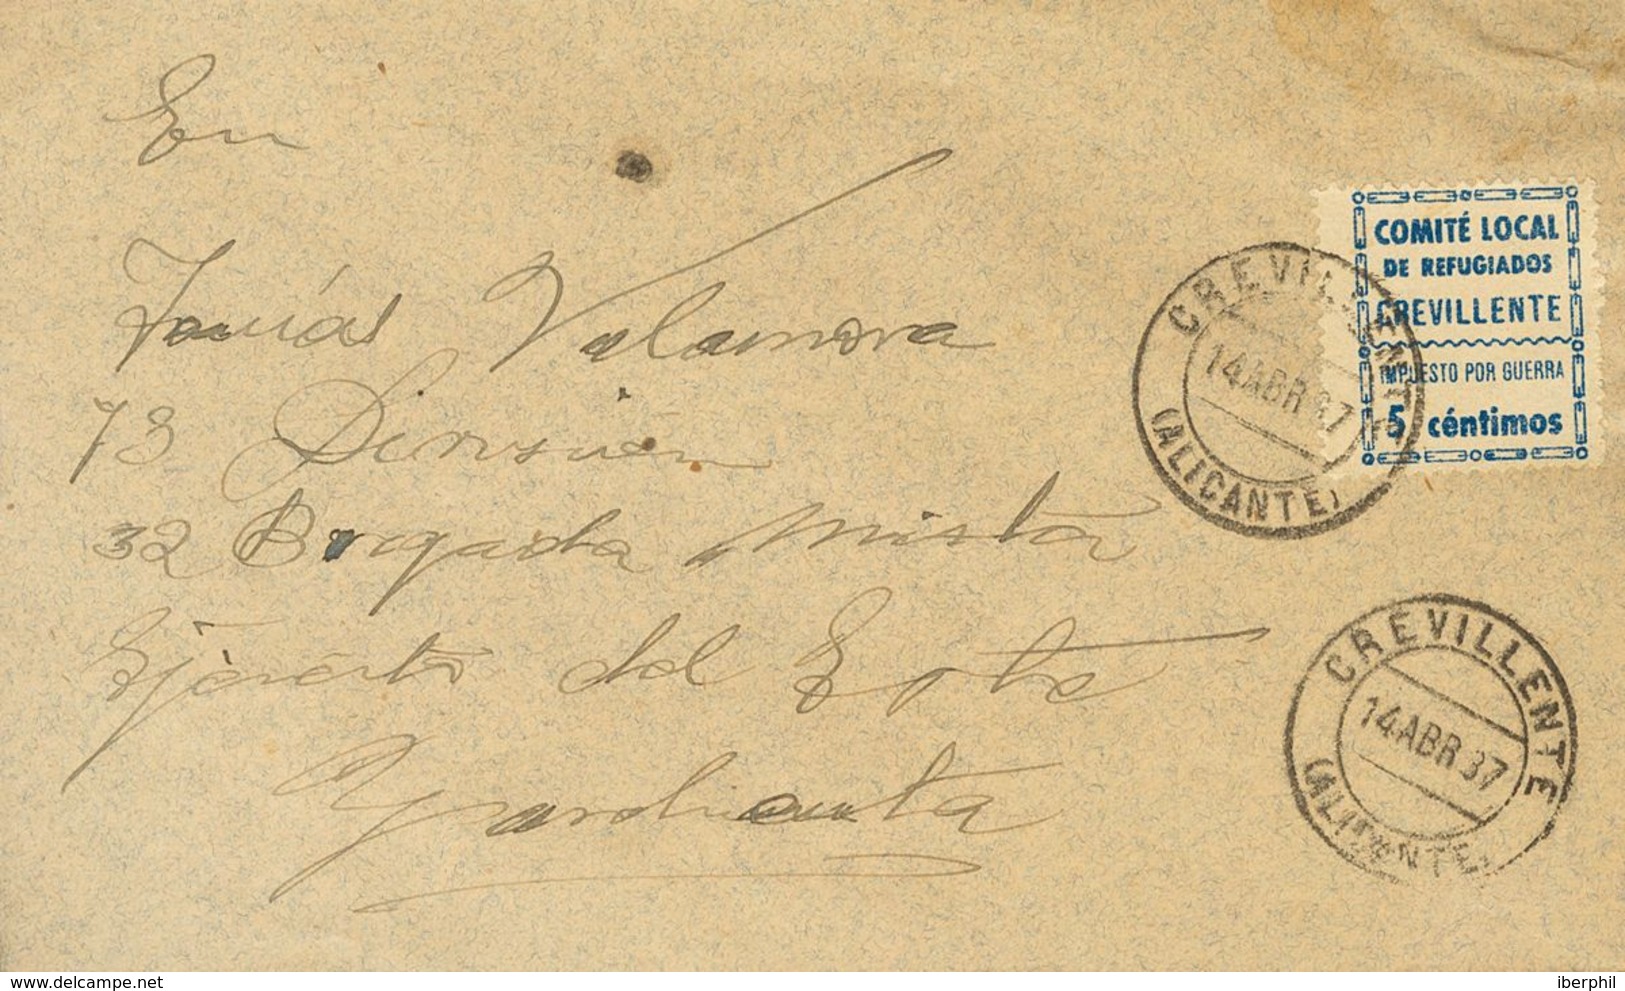 En
Tomás Valanova
73 División
32 Brigada Mista
Ejército del Este
COMITÉ LOCAL
DE REFUGIADOS
CREVILLENTE
IMPUESTO POR GUERRA
5 céntimos
CREVILLENTE
14 ABR 37
(ALICANTE)
CREVILLENTE
14 ABR 37
(ALICANTE)
delcampe.net
iberphil